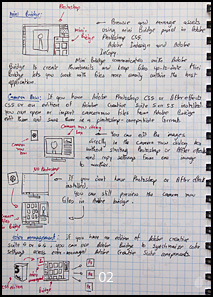 Photoshop
Mini Bridge
Browse and manage assets
using Mini Bridge panel in Adobe
Photoshop CS5.
Adobe InDesign and Adobe
InCopy
Mini Bridge communicates with Adobe
Bridge to create thumbnails and keep files up-to-date Mini
Bridge lets you work with files more easily within the host
application.
Camera Raw: If you have Adobe Photoshop CS5 or After effects
CS5 or an edition of Adobe Creative Suite 5 or 5.5 installed
You can open or import camera raw files from Adobe Bridge
edit them and save them in a photoshop-compatible format.
You can edit the images
directly in the camera raw dialog box
without starting Photoshop or After Effects
and copy settings from one image
to another.
No Photoshop
If you don't have Photoshop or After Effects
installed
you can still preview the camera raw
files in Adobe Bridge.
Color management: If you have an edition of Adobe Creative
Suite 4 or 5, you can use Adobe Bridge to synchronize color
settings across color-managed Adobe Creative Suite components.
02